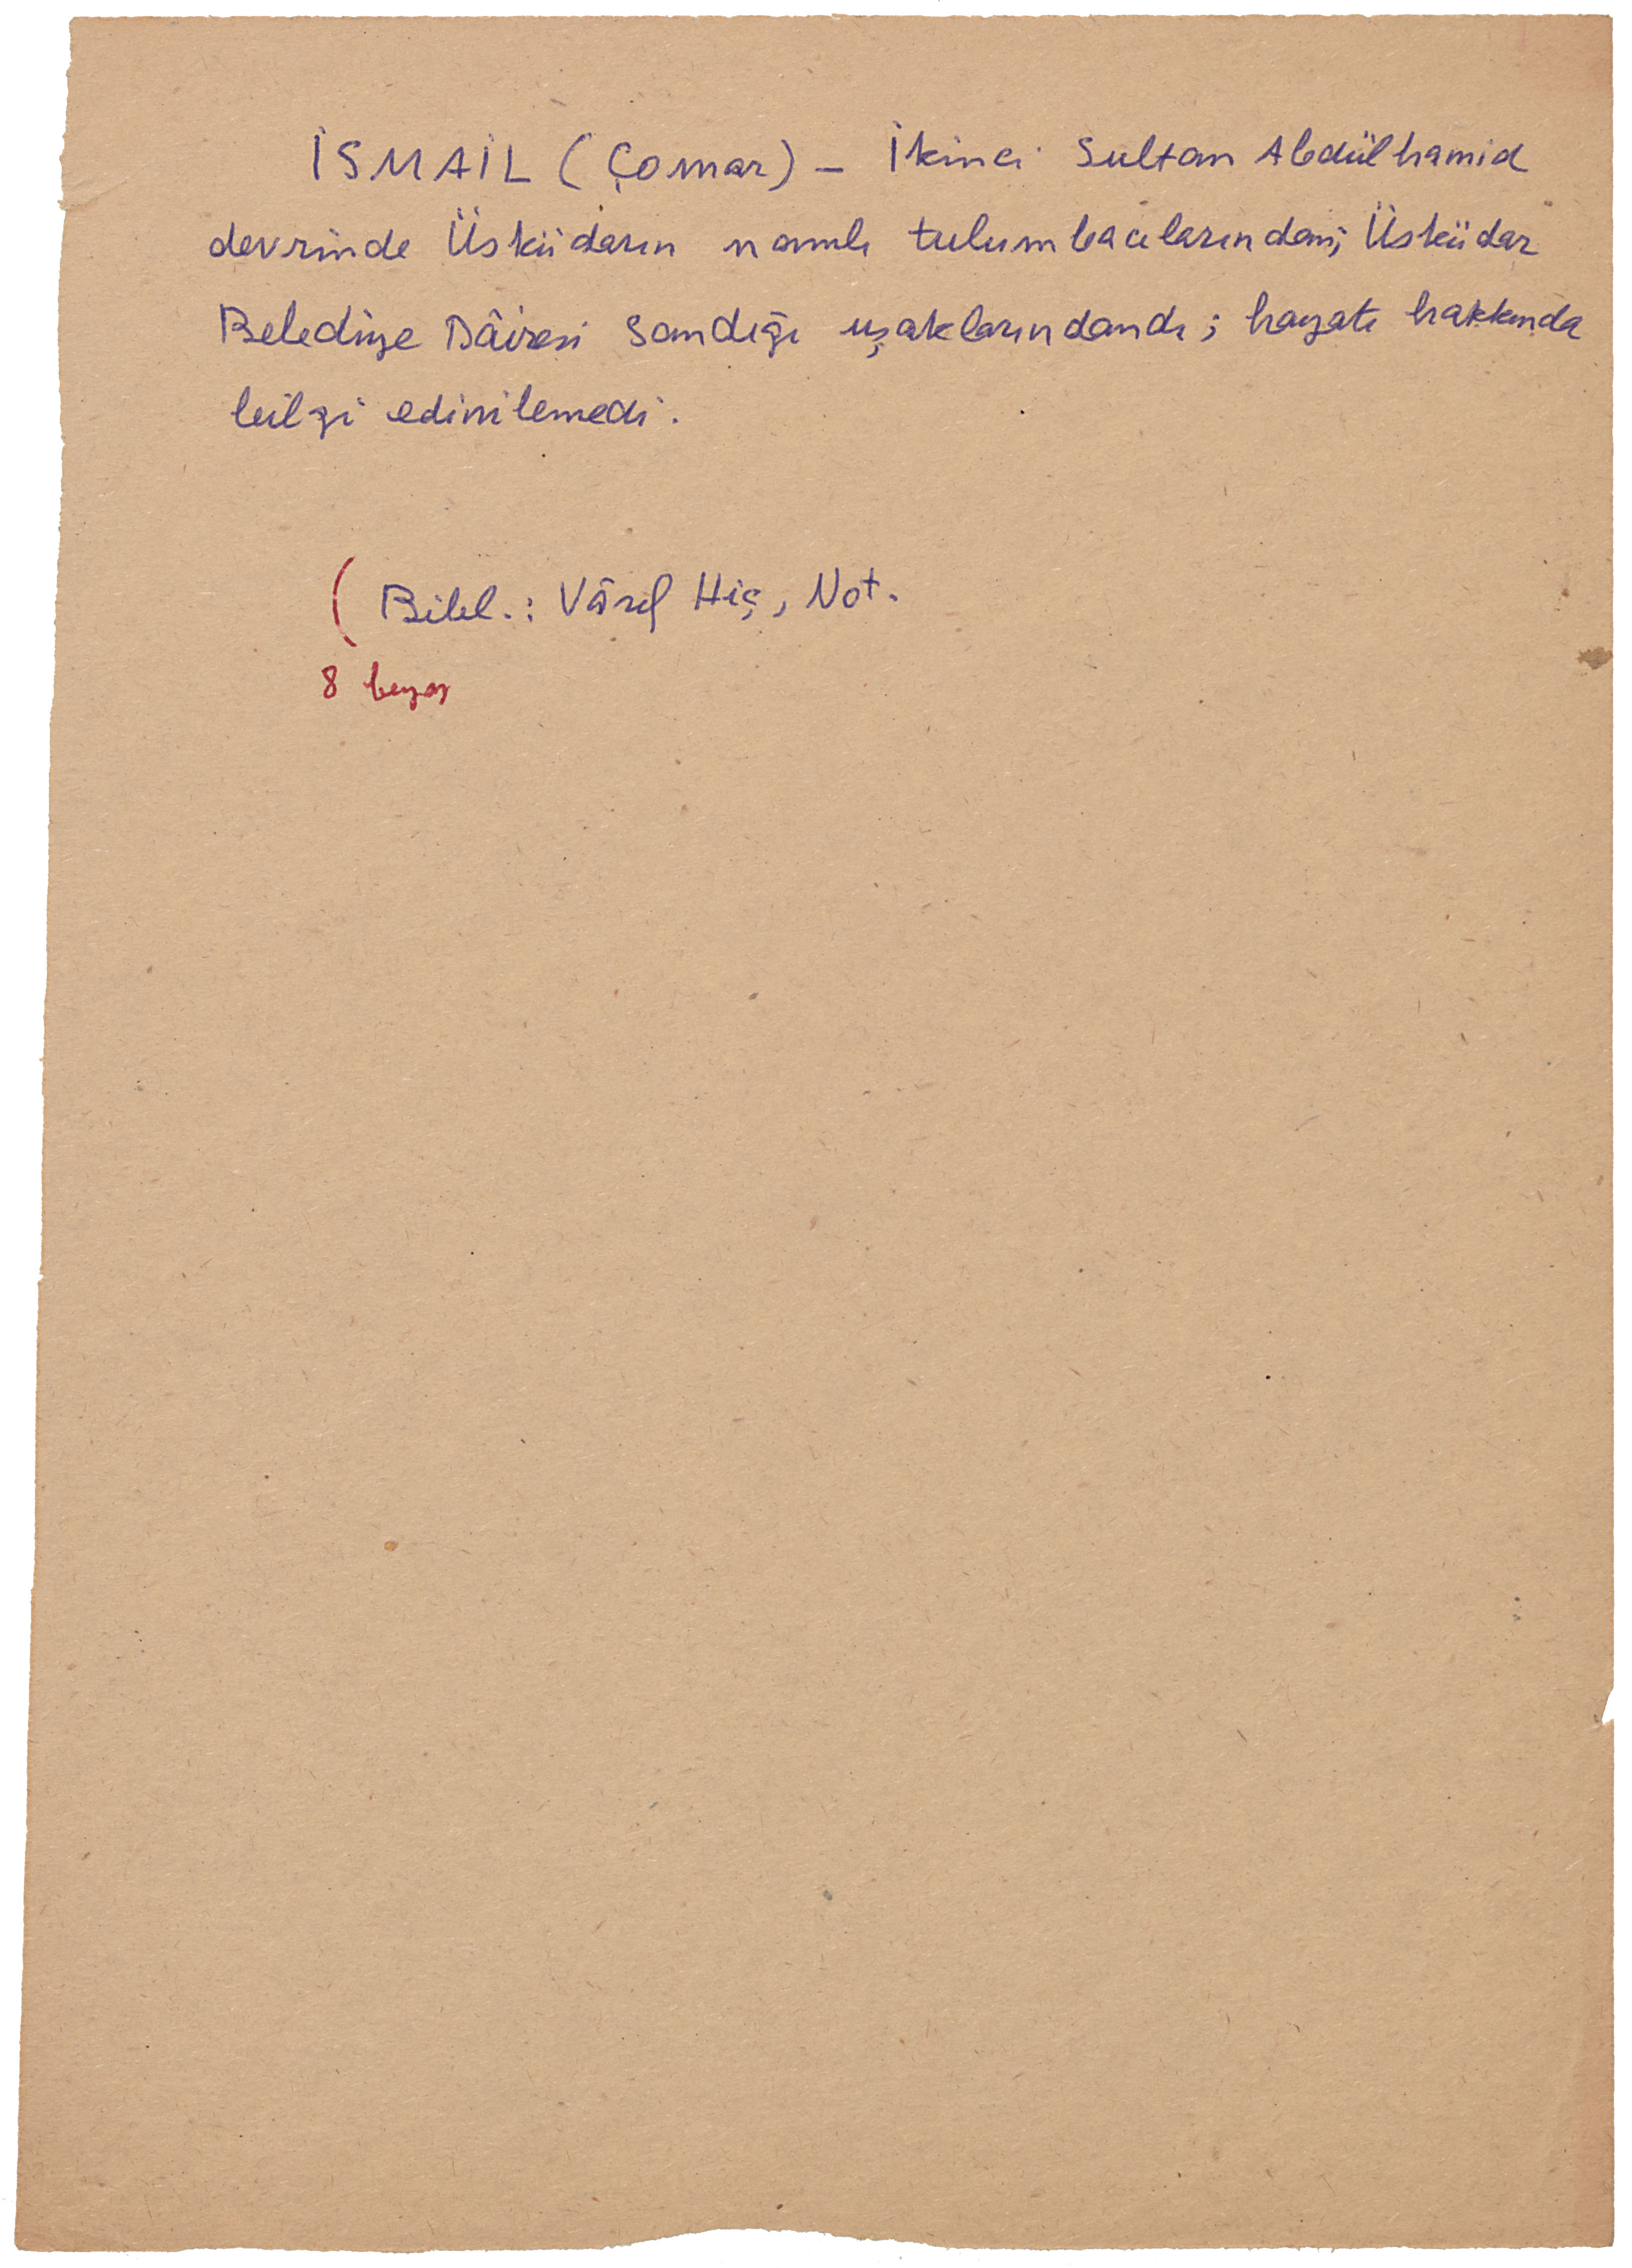 İSMAİL (Çomar) – İkinci Sultan Abdülhamid
devrinde Üsküdarın namlı tulumbacılarından; Üsküdar
Belediye Dâiresi Sandığı uşaklarındandı; hayatı hakkında
bilgi edinilemedi.
(Bibl.: Vâsıf Hiç, Not.
8 beyaz